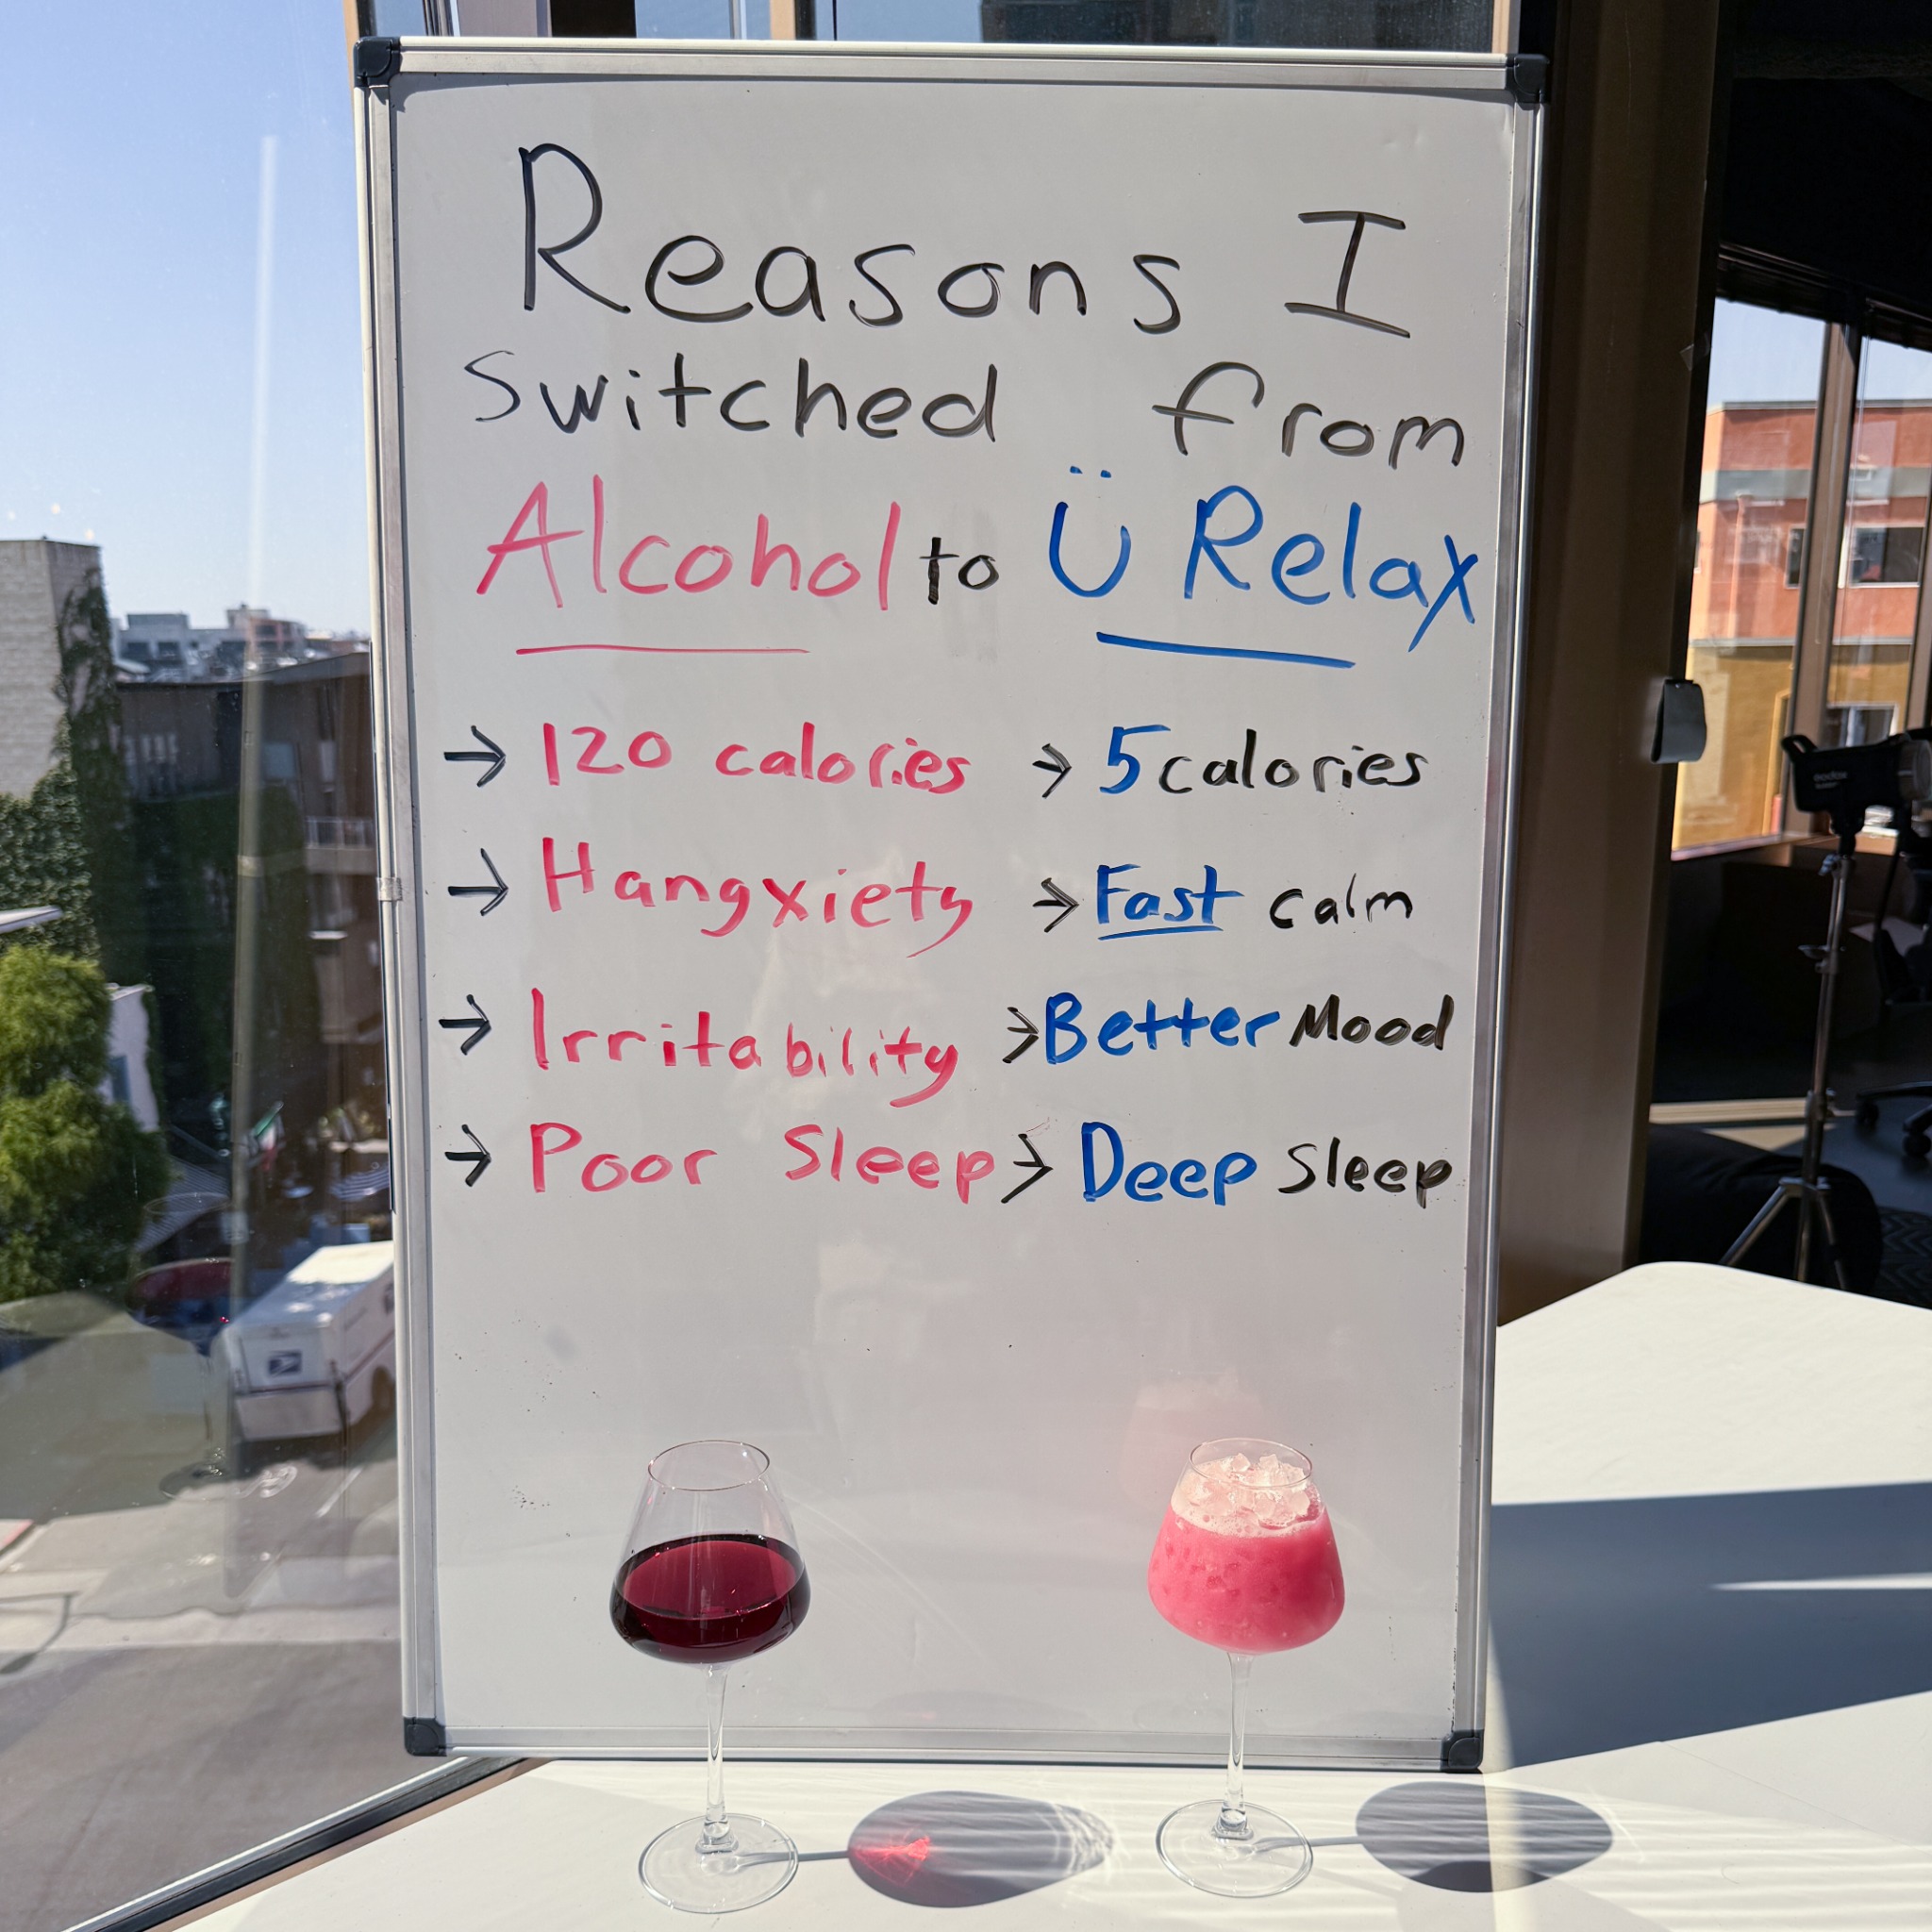 Reasons I
switched from
Alcohol to Ü Relax
→ 120 calories → 5 calories
→ Hangxiety → Fast calm
→ Irritability → Better Mood
→ Poor Sleep → Deep Sleep